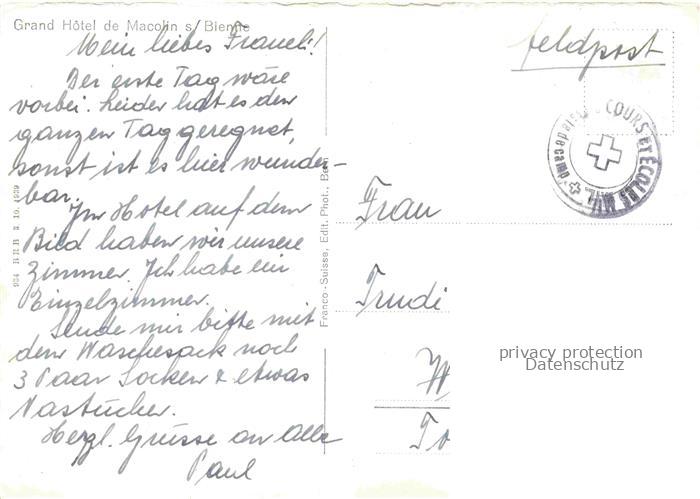 Grand Hôtel de Macolin s/Bienne
Mein liebes Fraueli!
Der erste Tag wäre
vorbei. Leider hat es den
ganzen Tag geregnet,
sonst ist es hier wunder-
bar.
Im Hotel auf dem
Bild haben wir unsere
Zimmer. Ich habe ein
Einzelzimmer.
Sende mir bitte mit
dem Wäschesack noch
3 Paar Socken & etwas
Nastücher.
Herzl. Grüsse an Alle
Paul
934 B.R.B. 3. 10. 1939
Franco-Suisse, Edit. Phot., Be
feldpost
COURS ET ÉCOLES MIL.
Frau
Trudi
W
To
privacy protection
Datenschutz